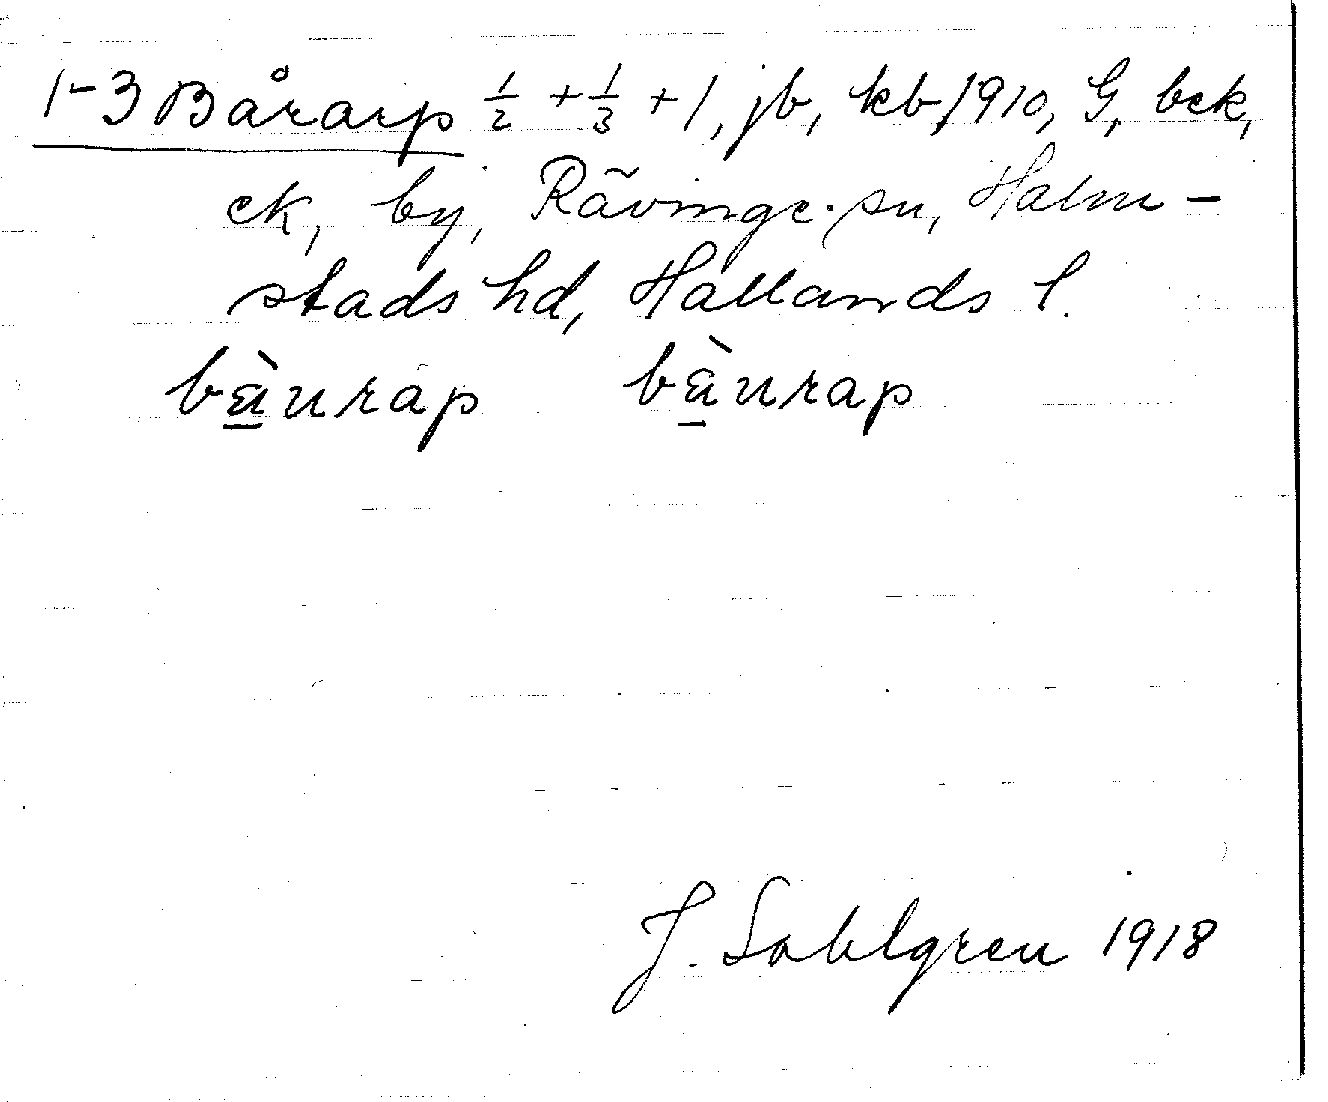 1-3 Bårarp ½ + ⅓ + 1, jb, kb, 1910, G, bek,
ek, by, Rävinge sn, Halm-
stads hd, Hallands l.
bà̱urap bà̱urap
J. Sahlgren 1918